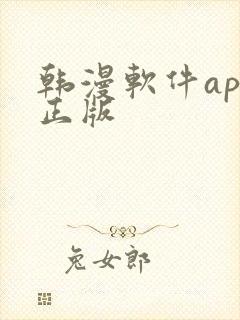 韩漫軟件ap
正版
兔女郎